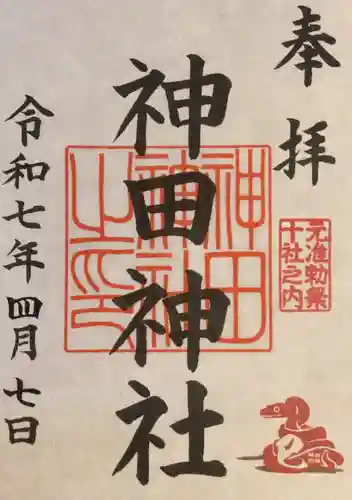 奉拝
元准勅祭
十社之内
神田神社
神田
神社
之印
令和七年四月七日